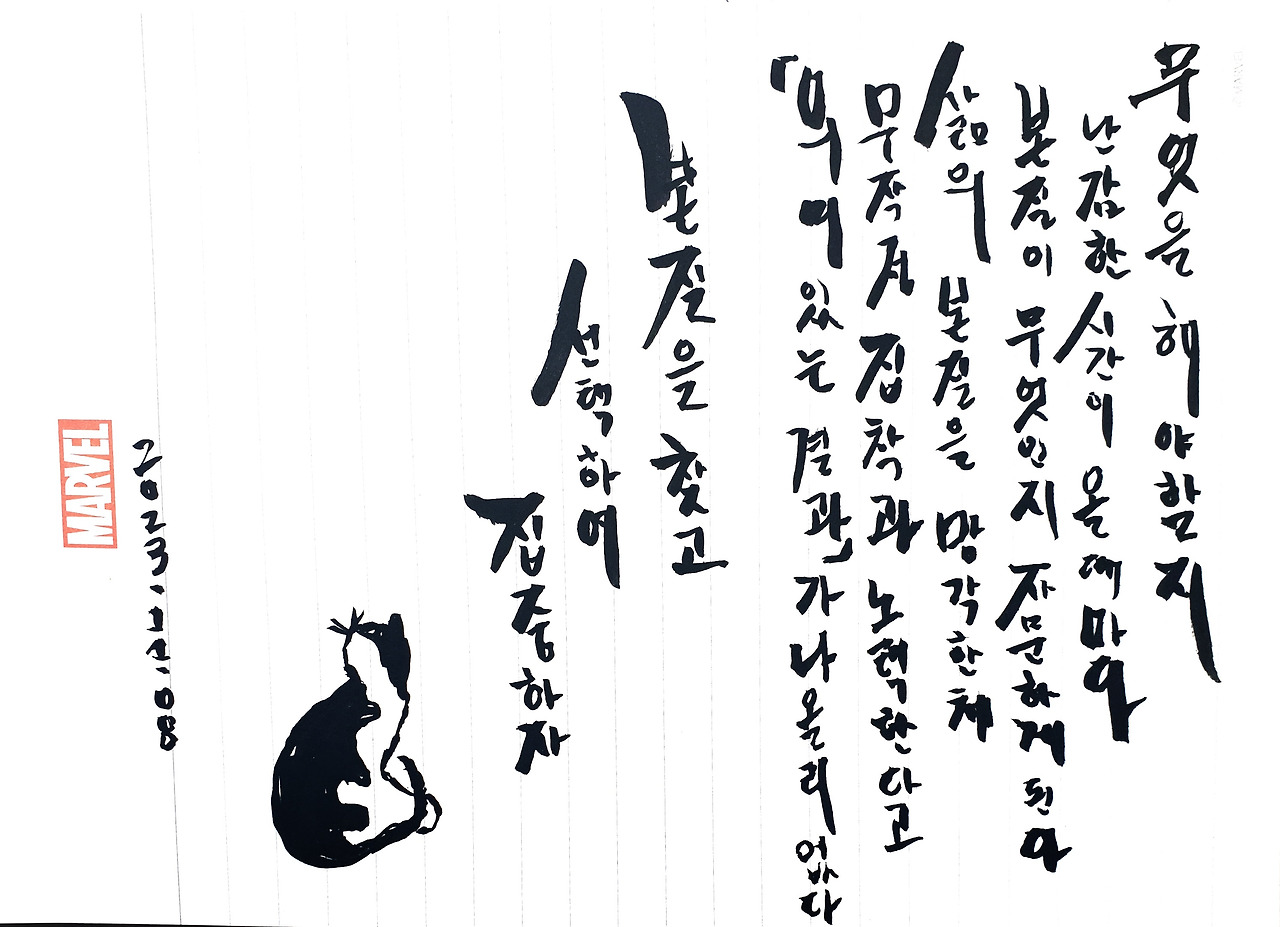 무엇을 해야할지
난감한 시간이 올 때마다
본질이 무엇인지 자문하게 된다
삶의 본질을 망각한 체
무작정 집착과 노력한다고
「의미 있는 결과」가 나올리 없다
본질을 찾고
선택하여
집중하자
2023.11.08
MARVEL